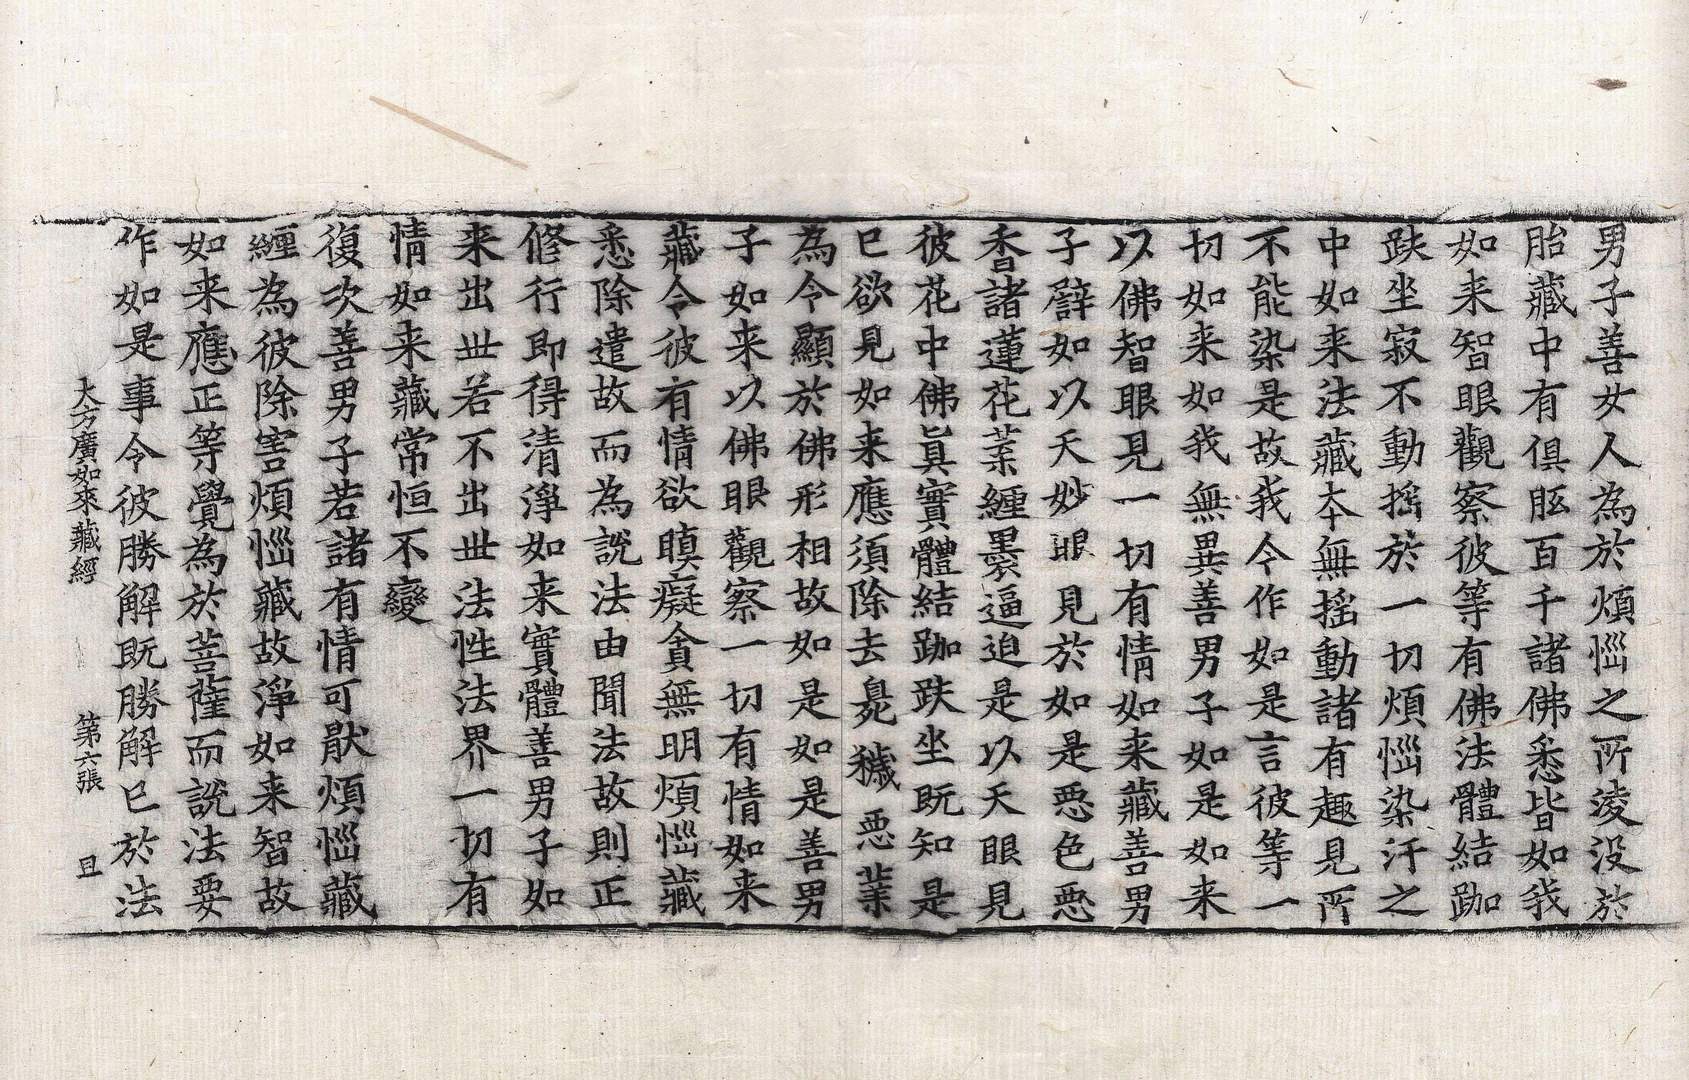 男子善女人為於煩惱之所淩沒於
胎藏中有俱胝百千諸佛悉皆如我
如来智眼觀察彼等有佛法體結跏
趺坐寂不動搖於一切煩惱染汙之
中如来法藏本無搖動諸有趣見所
不能染是故我今作如是言彼等一
切如来如我無異善男子如是如来
以佛智眼見一切有情如来藏善男
子譬如以天妙眼見於如是惡色惡
香諸蓮花葉纏褁逼迫是以天眼見
彼花中佛真實體結跏趺坐既知是
已欲見如来應須除去臭穢惡葉
為令顯於佛形相故如是如是善男
子如来以佛眼觀察一切有情如来
藏令彼有情欲瞋癡貪無明煩惱藏
悉除遣故而為說法由聞法故則正
修行即得清淨如来實體善男子如
来出世若不出世法性法界一切有
情如来藏常恒不變
復次善男子若諸有情可猒煩惱藏
纏為彼除害煩惱藏故淨如来智故
如来應正等覺為於菩薩而說法要
作如是事令彼勝解既勝解已於法
大方廣如來藏經 第六張 且